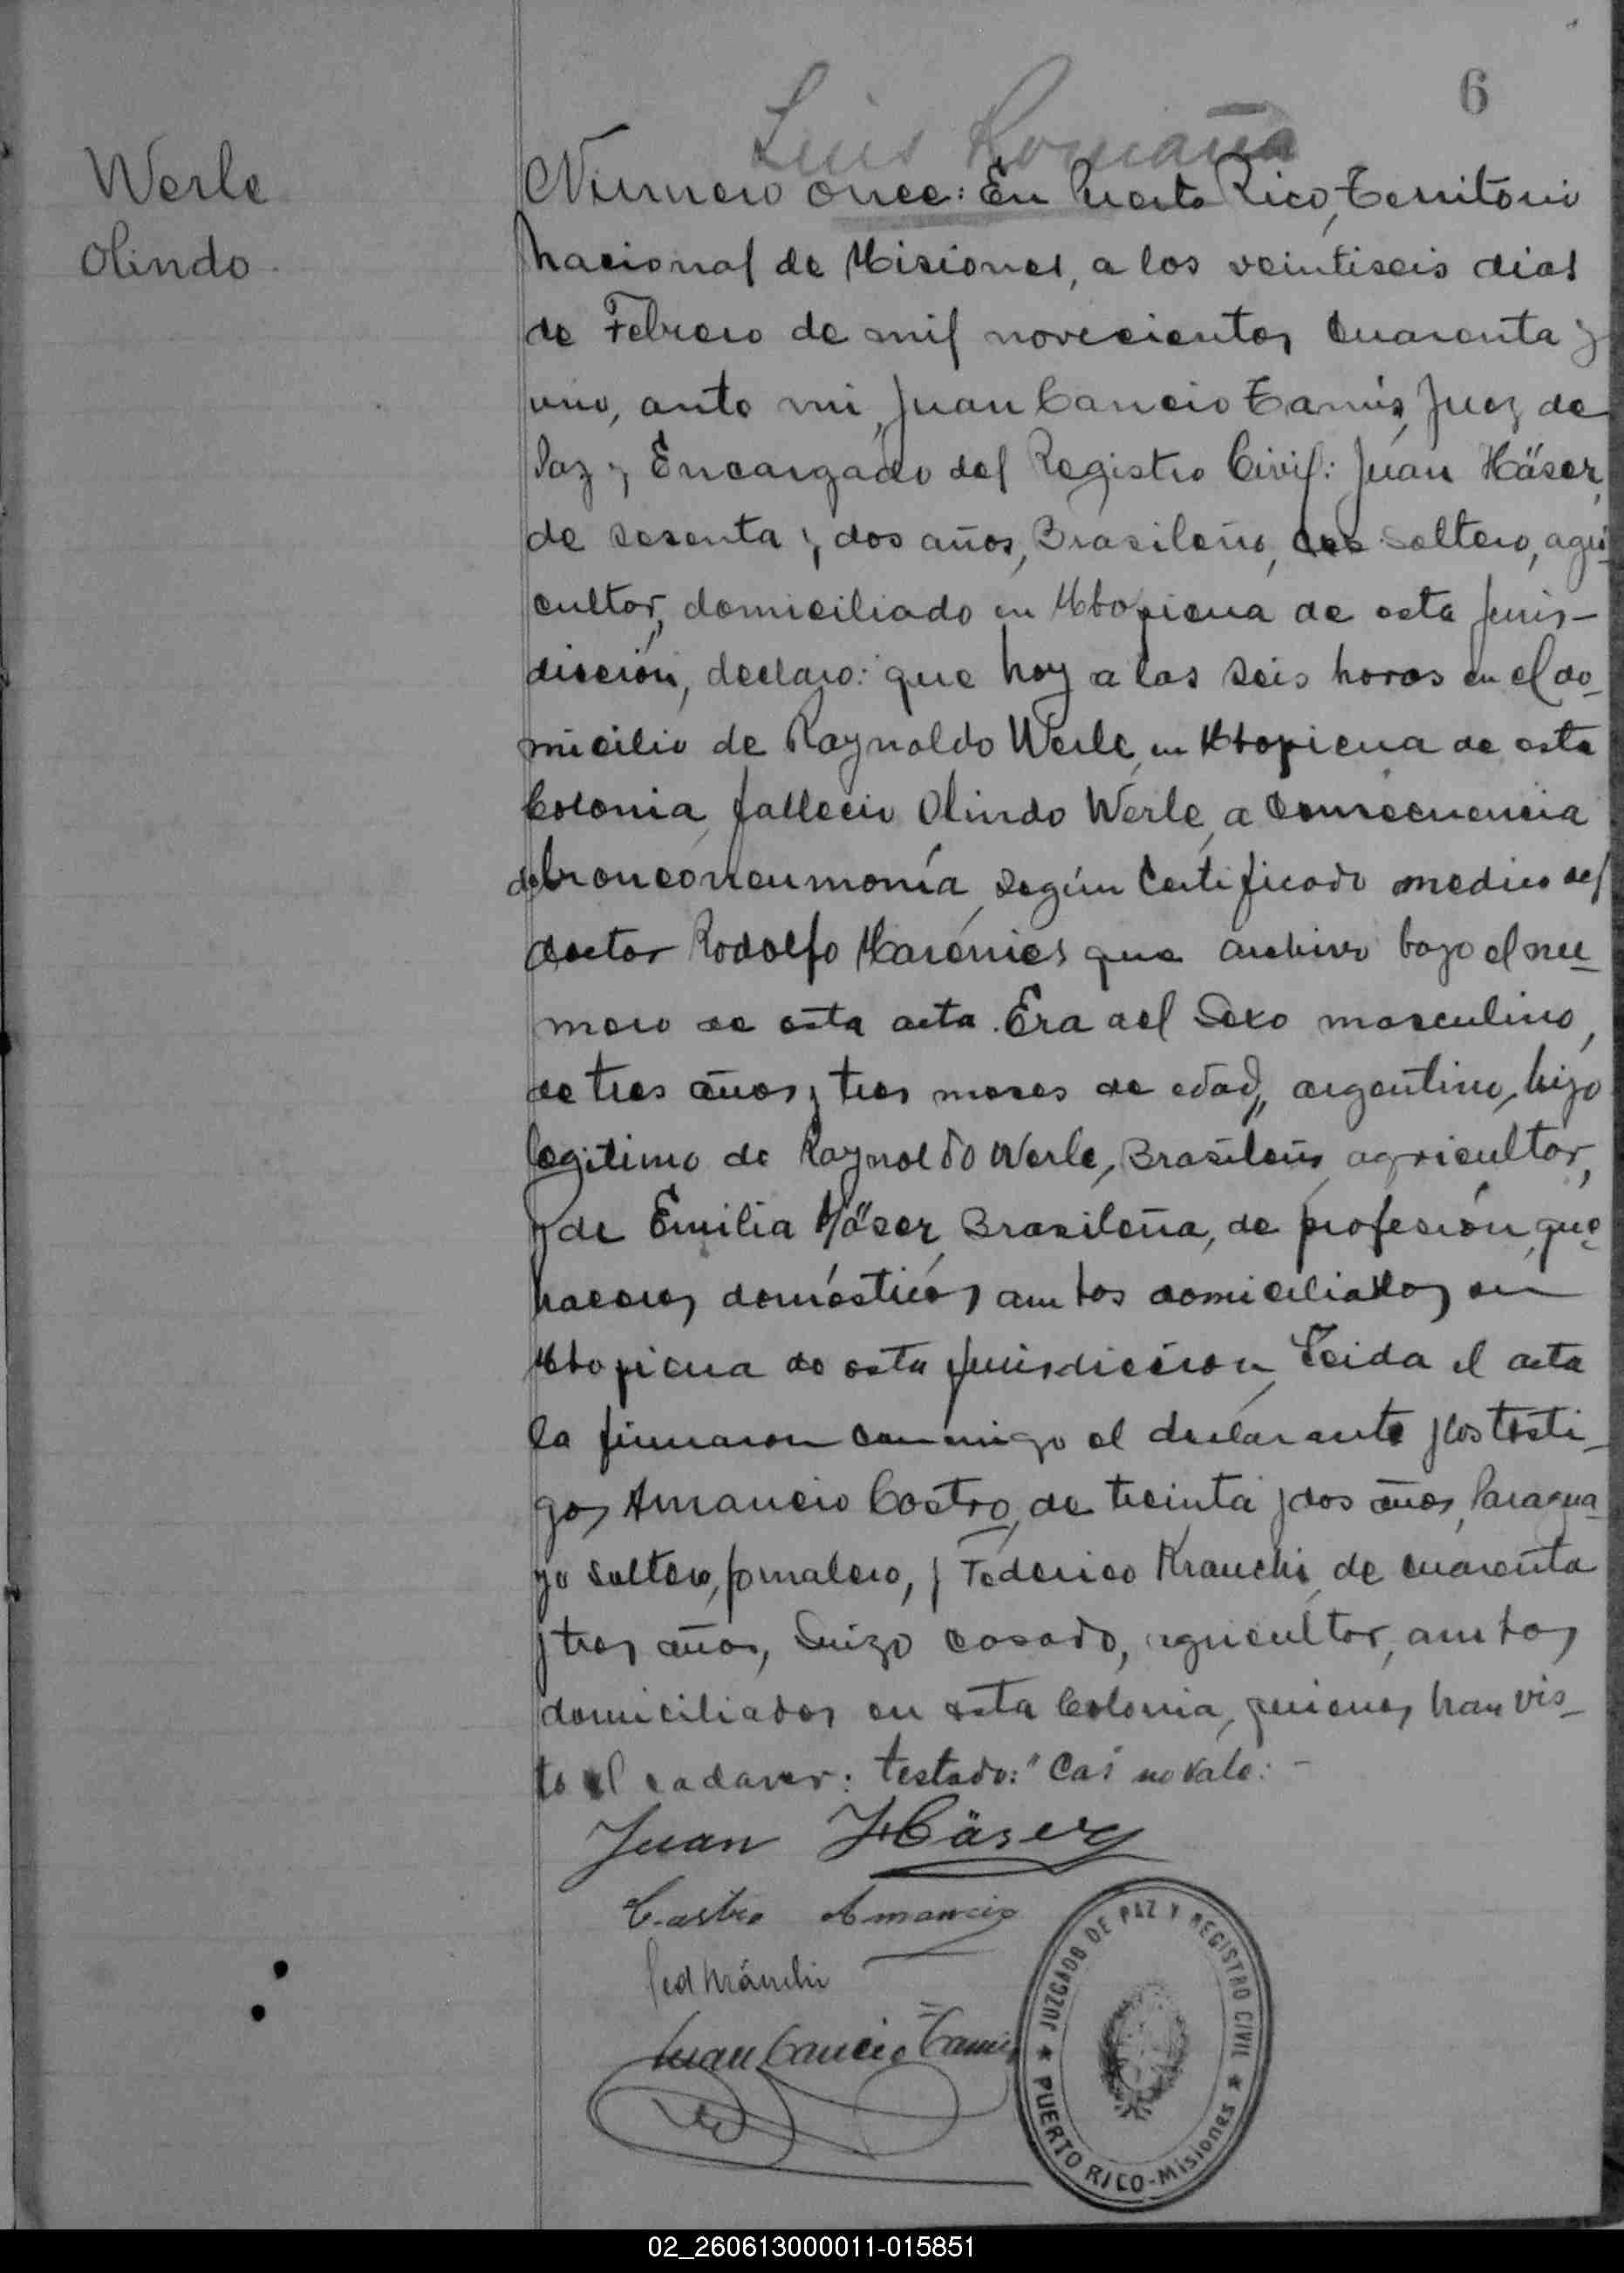 6
Luis Romaña
Werle
Olindo
Número once: En Puerto Rico, Territorio
Nacional de Misiones, a los veintiseis dias
de Febrero de mil novecientos cuarenta y
uno, ante mi, Juan Cancio Tamis, Juez de
Paz y Encargado del Registro Civil: Juan Häser,
de sesenta y dos años, Brasileño, cas soltero, agri-
cultor, domiciliado en Mbopicua de esta juris-
dicción, declaro: que hoy a las seis horas en el do-
micilio de Raynoldo Werle, en Mbopicua de esta
Colonia, fallecio Olindo Werle, a consecuencia
de bronconeumonía, según certificado medico del
doctor Rodolfo que archivo bajo el nu-
mero de esta acta. Era del Sexo masculino,
de tres años y tres meses de edad, argentino, hijo
legitimo de Raynoldo Werle, Brasileño, agricultor,
y de Emilia Häser, Brasileña, de profesión, que-
haceres domésticos, ambos domiciliados en
Mbopicua de esta jurisdiccion, Leida el acta
la firmaron conmigo el declarante y los testi-
gos Amancio Castro, de treinta y dos años, Paragua-
yo soltero, jornalero, y Federico Kranchi, de cuarenta
y tres años, Suizo casado, agricultor, ambos
domiciliados en esta Colonia, quienes han vis-
to el cadaver: testado:" Cas no vale: -
Juan Häser
Castro Amancio
Fed Kränchi
Juan Cancio Tamis
JUZGADO DE PAZ Y REGISTRO CIVIL
PUERTO RICO - Misiones
02_260613000011-015851